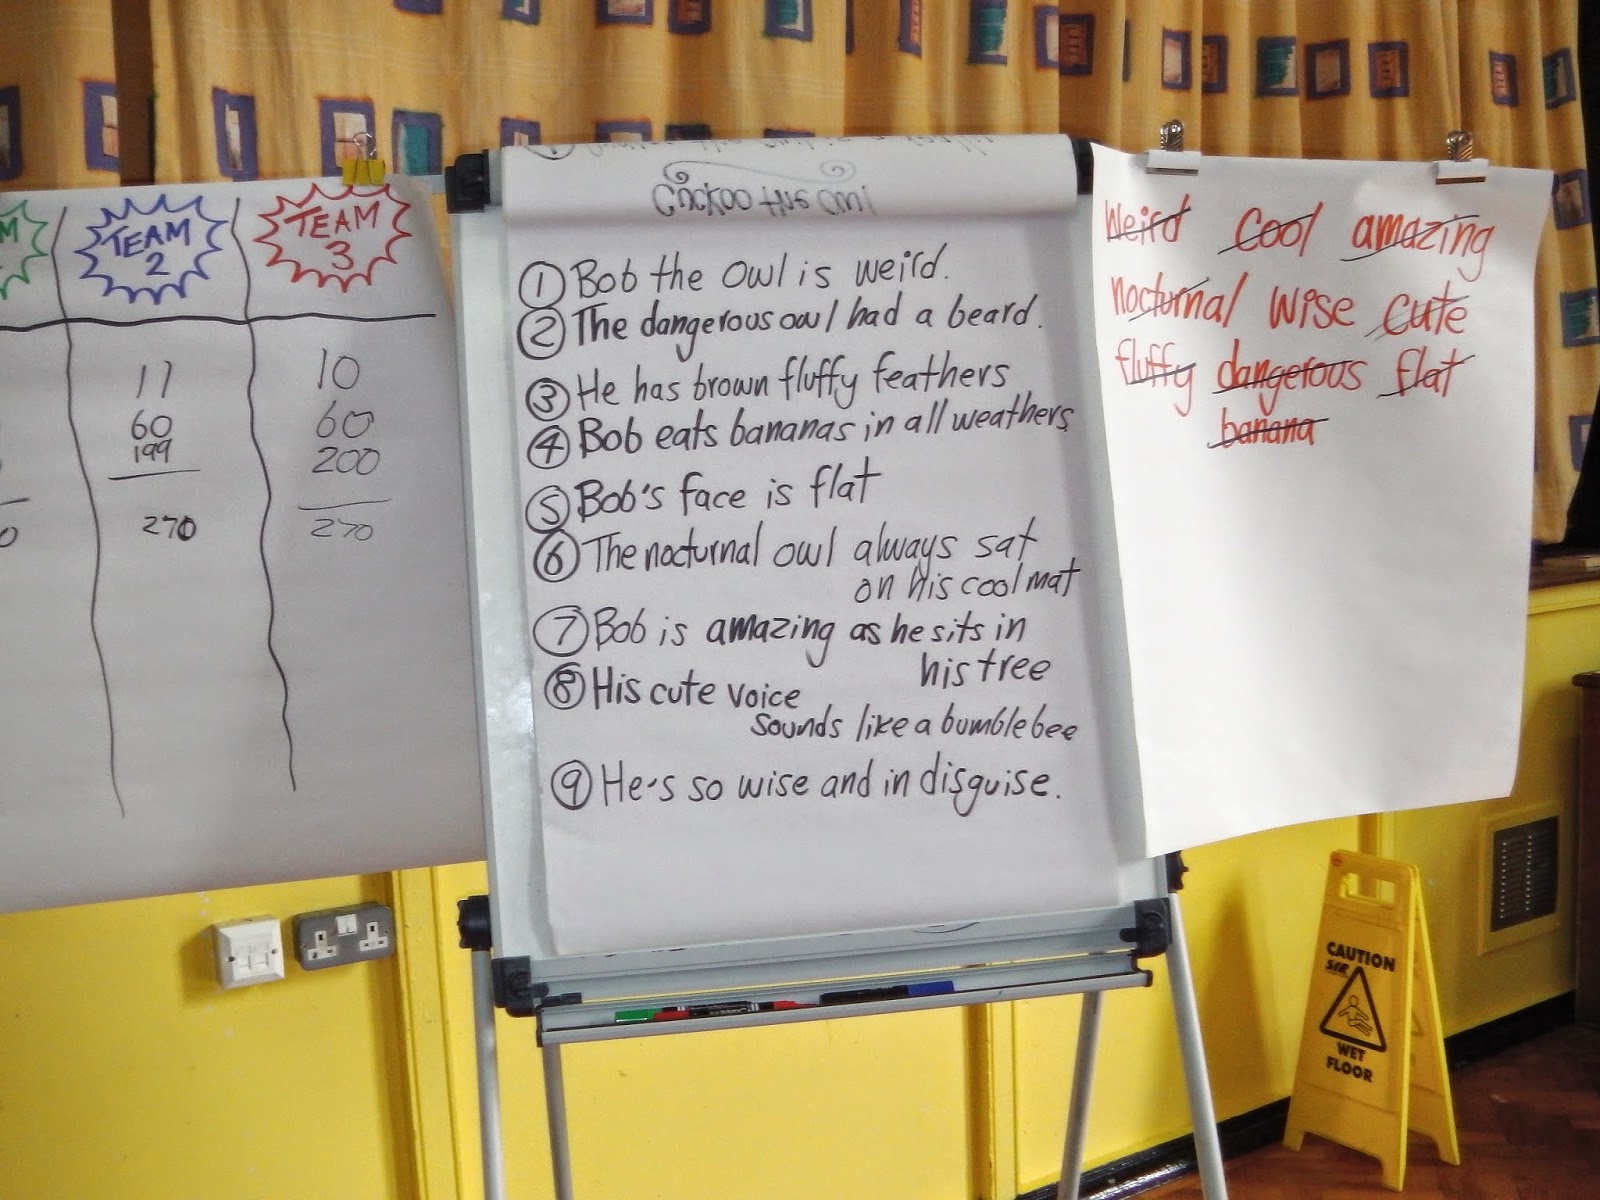 TEAM
2
11
60
199
270
TEAM
3
10
60
200
270
Cuckoo the Owl
1 Bob the owl is weird.
2 The dangerous owl had a beard.
3 He has brown fluffy feathers
4 Bob eats bananas in all weathers
5 Bob's face is flat
6 The nocturnal owl always sat
on his cool mat
7 Bob is amazing as he sits in
his tree
8 His cute voice
sounds like a bumblebee
9 He's so wise and in disguise.
Weird Cool amazing
nocturnal wise cute
fluffy dangerous flat
banana
CAUTION
WET
FLOOR